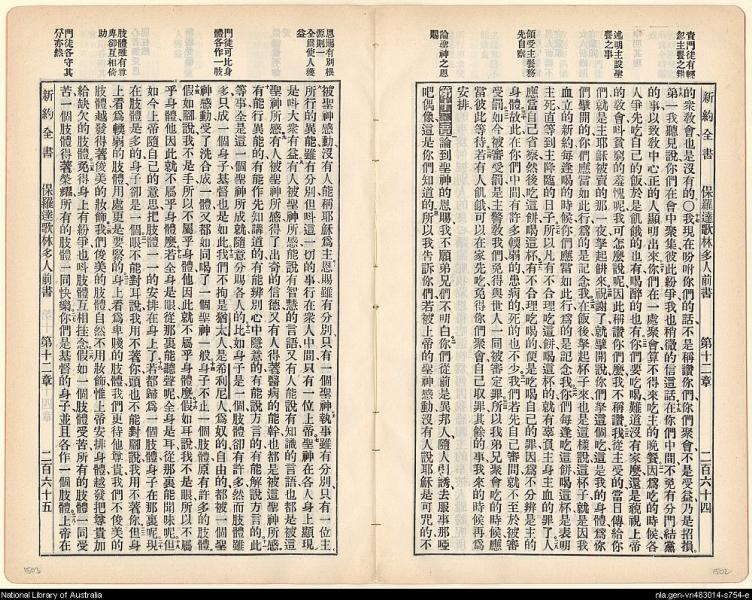 責門徒有輕
忽主餐之錯
述明主設聖
餐之事
領受主餐務
先自察
論聖神之恩
賜
新約全書 保羅達歌林多人前書 第十二章 二百六十四
的衆教會也是沒有的○我現在吩咐你們的話不是稱讚你們你們聚會不是受益乃是招損
第一我聽見說你們在會中聚集彼此紛爭我也稍微的信這話在你們中間不免有分門結黨
的事以致教中心正的人顯明出來你們在一處聚會算不得來吃主的晚餐因爲吃的時候各
人爭先吃自己的飯於是飢餓的也有喝醉的也有你們要吃喝難道沒有家麼還是藐視上帝
的教會呌貧窮的羞愧呢我可怎麼說呢因此稱讚你們麼我不稱讚我從主受的當日傳給你
們就是主耶穌被賣的那一夜拏起餅來祝謝了就擘開說你們拏這個吃這是我的身體爲你
們擘開的你們應當如此行爲的是記念我在飯後拏起杯子來也是這樣說這杯子就是因我
血立的新約每逢喝的時候你們應當如此行爲的是記念我你們每逢吃這餅喝這杯是表明
主死直等到主降臨的日子所以凡有不合理吃這餅喝這杯的就有辜負主身主血的罪了人
應當自己省察然後吃這餅喝這杯有不合理吃喝的便是吃喝自己的罪因爲不分辨是主的
身體故此在你們中間有許多輭弱的患病的死的也不少我們若先自己審問就不至於被審
受罰如今被審受罰是主警教我們免得與世人一同被審定罪所以我弟兄聚會吃的時候應
當彼此等待若有人飢餓可以在家先吃免得你們聚會自己取罪其餘的事我來的時候再爲
安排
第十二章論到聖神的恩賜我不願弟兄們不明白你們從前是異邦人隨人引誘去服事那啞
吧偶像這是你們知道的所以我告訴你們若被上帝的聖神感動沒有人說耶穌是可咒的不
恩賜有別根
源則一
全爲使人獲
益
門徒可比身
體各作一肢
肢體雖有尊
卑卻互相倚
助
門徒各守其
分亦然
新約全書 保羅達歌林多人前書 第十二章 二百六十五
被聖神感動沒有人能稱耶穌爲主恩賜雖有分別只有一個聖神執事雖有分別只有一位主
所行的異能雖有分別但呌這一切的事行在衆人中間只有一位上帝聖神在各人身上顯現
是呌大衆有益有人被聖神所感能說有智慧的言語又有人能說有知識的言語也都是被這
聖神所感有人被聖神所感得了出奇的信德又有人得著醫病的能幹也都是被這聖神所感
有能行異能的有能作先知講道的有能辨別心中隱意的有能說方言的有能解說方言的此
等事全是這一個聖神所成就隨意分賜各人的比如身子是一個肢體卻有許多然而肢體雖
多只成一個身子基督也是如此我們不拘是猶太人是希利尼人爲奴的自由的都被一個聖
神感動受了洗合成一體又都如同喝了一個聖神一般身子不止一個肢體原有許多的肢體
假如腳說我不是手所以不屬乎身體他因此就不屬乎身體麼假如耳說我不是眼所以不屬
乎身體他因此就不屬乎身體麼若全身是眼從那裏能聽聲呢全身是耳從那裏能聞味呢但
如今上帝隨自己的意思把肢體一一的安排在身上了若都歸爲一個肢體身子在那裏呢現
在肢體是多的身子卻是一個眼不能對耳說我用不著你頭也不能對腳說我用不著你但身
上看爲輭弱的肢體用處更是要緊的身上看爲卑賤的肢體我們更待他尊貴我們不俊美的
肢體越發得著俊美的妝飾我們俊美的肢體自然不用妝飾惟上帝安排身體越發把尊貴加
給缺欠的肢體免得身上有紛爭也呌肢體互相挂念假如一個肢體受苦所有的肢體一同受
苦一個肢體得著榮耀所有的肢體一同快樂你們是基督的身子並且各作一個肢體上帝在
1503
1502
National Library of Australia
nla.gen-vn483014-s754-e